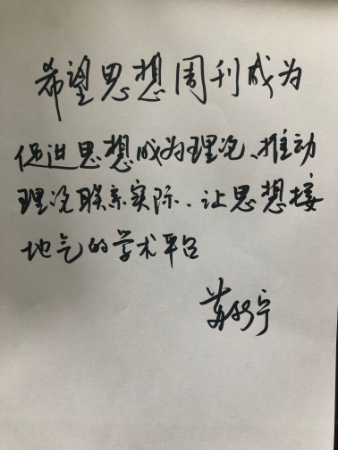 希望思想周刊成为
促进思想成为理论、推动
理论联系实际、让思想接
地气的学术平台
苏新宁